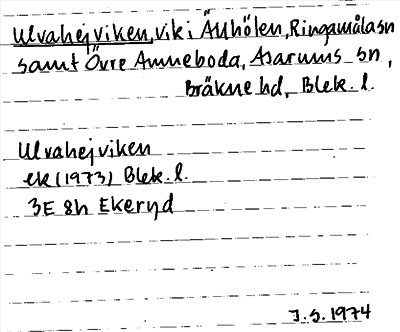 Ulvahejviken, vik i Älhölen, Ringamåla sn
samt Övre Amneboda, Asarums sn,
Bräkne hd, Blek. l.
Ulvahejviken
ek (1973) Blek. l.
3E 8h Ekeryd
J.S. 1974